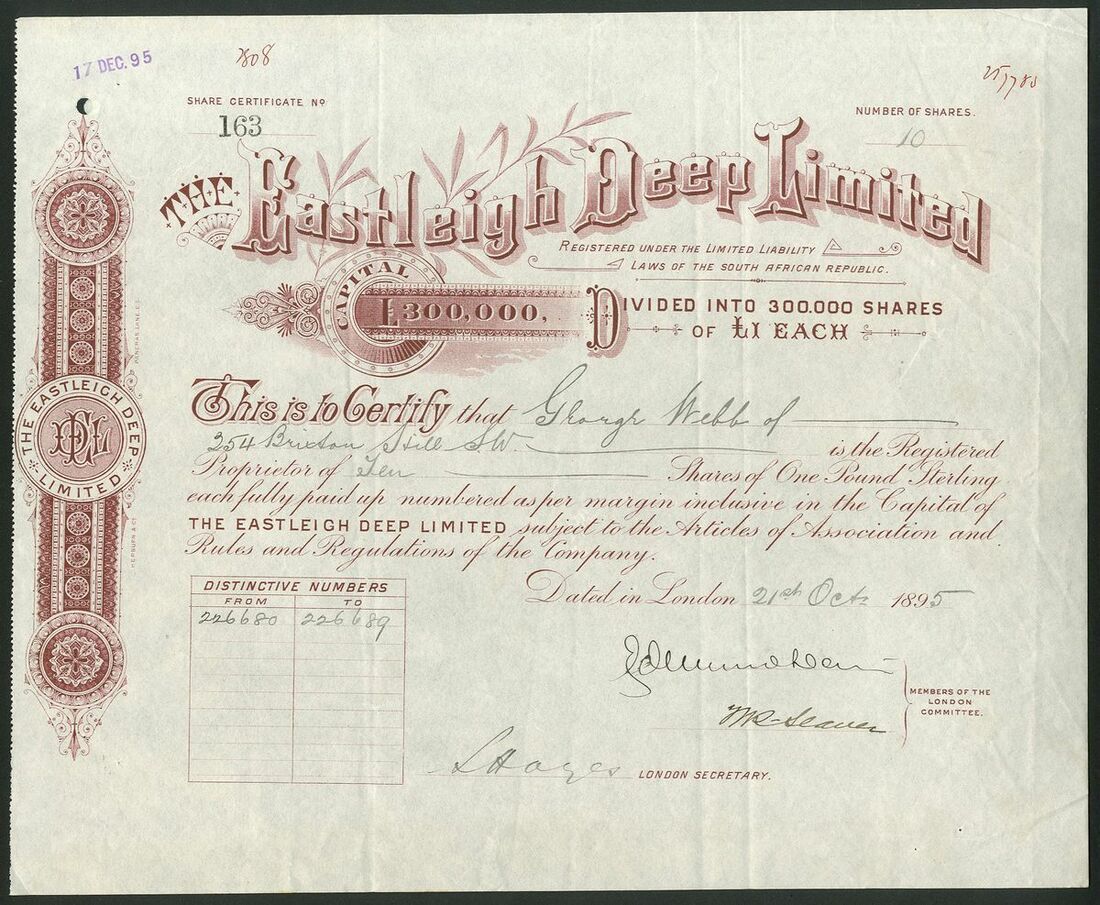 17 DEC. 95
808
SHARE CERTIFICATE Nº
163
NUMBER OF SHARES.
10
THE Eastleigh Deep Limited
REGISTERED UNDER THE LIMITED LIABILITY
LAWS OF THE SOUTH AFRICAN REPUBLIC.
CAPITAL
£300,000,
DIVIDED INTO 300.000 SHARES
OF £1 EACH
This is to Certify that George Webb of
354 Brixton Hill S.W. is the Registered
Proprietor of Ten Shares of One Pound Sterling
each fully paid up numbered as per margin inclusive in the Capital of
THE EASTLEIGH DEEP LIMITED subject to the Articles of Association and
Rules and Regulations of the Company.
Dated in London 21st Oct. 1895
DISTINCTIVE NUMBERS
FROM TO
226680 226689
MEMBERS OF THE
LONDON
COMMITTEE.
LONDON SECRETARY.
THE EASTLEIGH DEEP
EDL
LIMITED
HEPBURN & Cº
PANCRAS LANE. E.C.